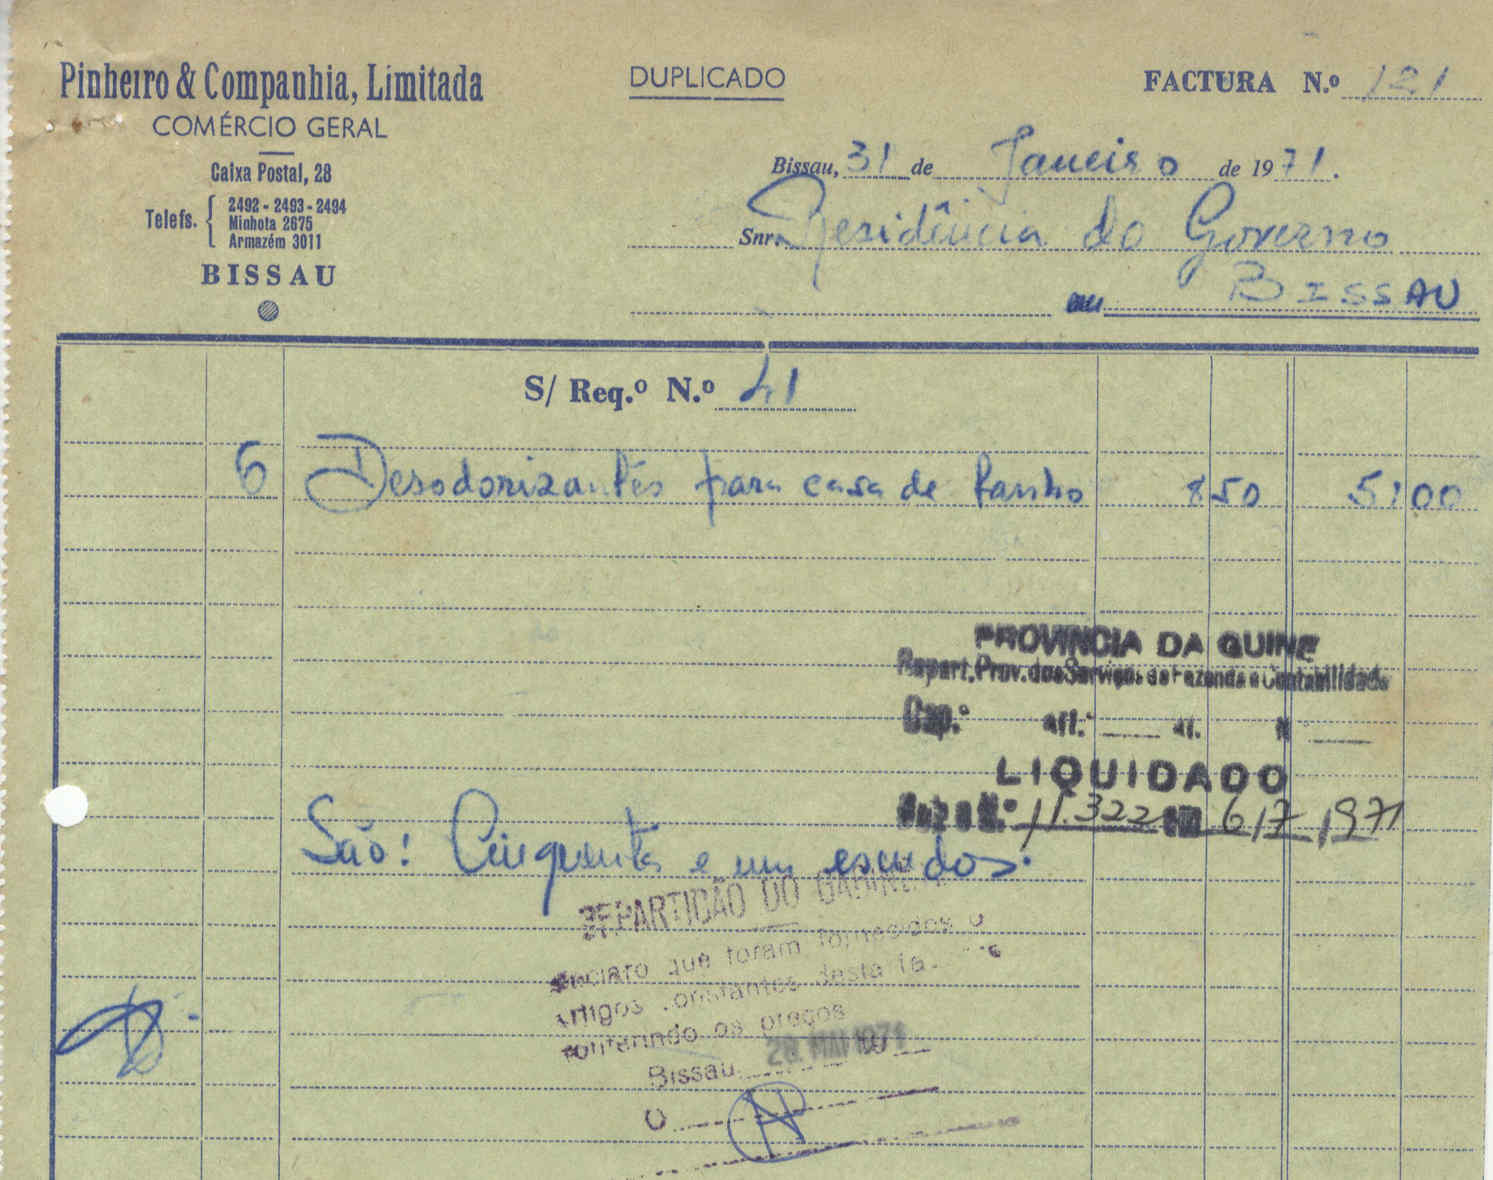 Pinheiro & Companhia, Limitada
COMÉRCIO GERAL
Caixa Postal, 28
Telefs. { 2492 - 2493 - 2494
Minhota 2675
Armazém 3011
BISSAU
DUPLICADO
FACTURA N.º 121
Bissau, 31 de Janeiro de 1971.
Snr. Residência do Governo
BISSAU
S/ Req.º N.º 41
6 Desodorizantes para casa de banho 8 50 51 00
PROVINCIA DA GUINE
Repart. Prov. dos Serviços de Fazenda e Contabilidade
Cap.º art.º al. N
LIQUIDADO
N.º 11.322 EM 6/7/1971
São: Cinquenta e um escudos.
REPARTIÇÃO DO GABINETE
Declaro que foram fornecidos o
artigos constantes desta fa
conferindo os preços
Bissau 28. MAI 1971
O